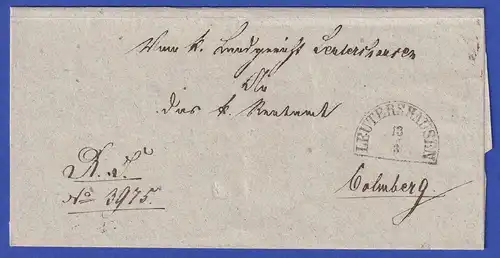 Vom k. Landgericht Leutershausen
An
das k. Rentamt
LEUTERSHAUSEN
13
3
R. S.
No 3975.
Colmberg.